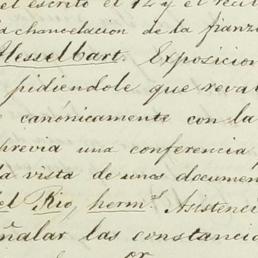 el escrito el 124 el reci
la chancelacion de la fianz
Hesselbart. Exposicion
pidiendole que reva
canónicamente con la
previa una conferencia
la vista de unos documen
del Rio, herm.s Asistenci
ñalar las constanci
or